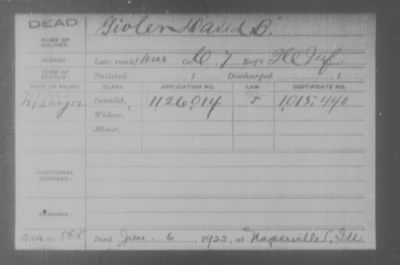 DEAD
NAME OF SOLDIER: Giolen David B.
SERVICE: Late rank, Co. K. 7 Reg't
TERM OF SERVICE: Enlisted 1 Discharged 1
DATE OF FILING: CLASS. APPLICATION NO. LAW. CERTIFICATE NO.
Invalid, 1126014 1015,440
Widow,
Minor,
ADDITIONAL SERVICES:
REMARKS:
Died Jan. 6, 1923, at Naperville, Ill.